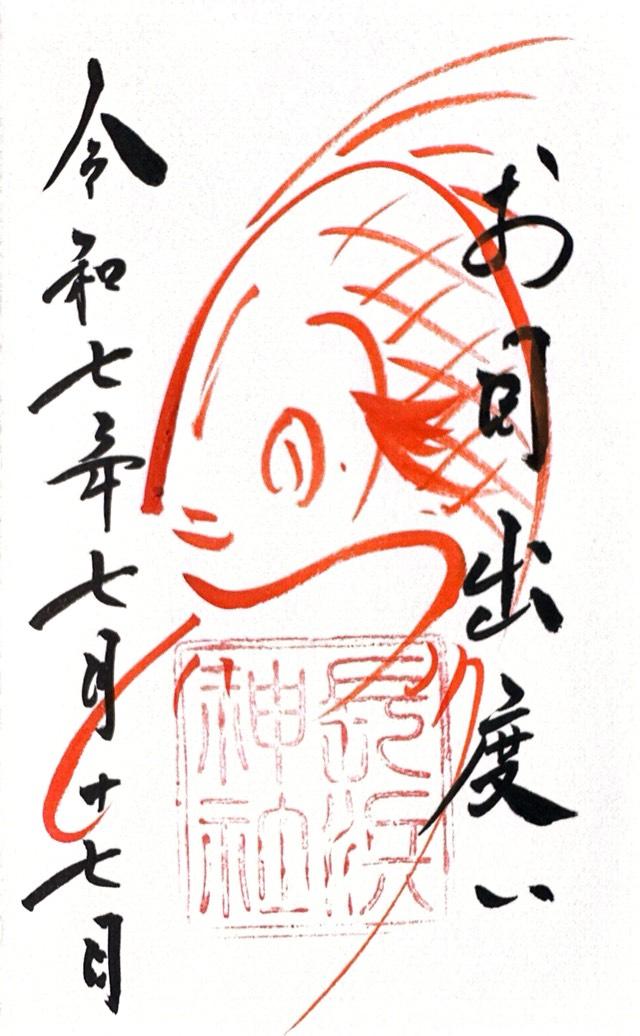 お目出度い
長浜
神社
令和七年七月十七日